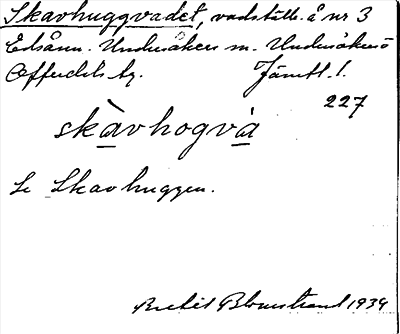 Skavhuggvadet, vadställe å nr 3
Edsånn. Undersåkers sn. Undersåkers o
Offerdals tg. Jämtl. l.
227
skàvhogvá
Se Skavhuggen.
Blomstrand 1939